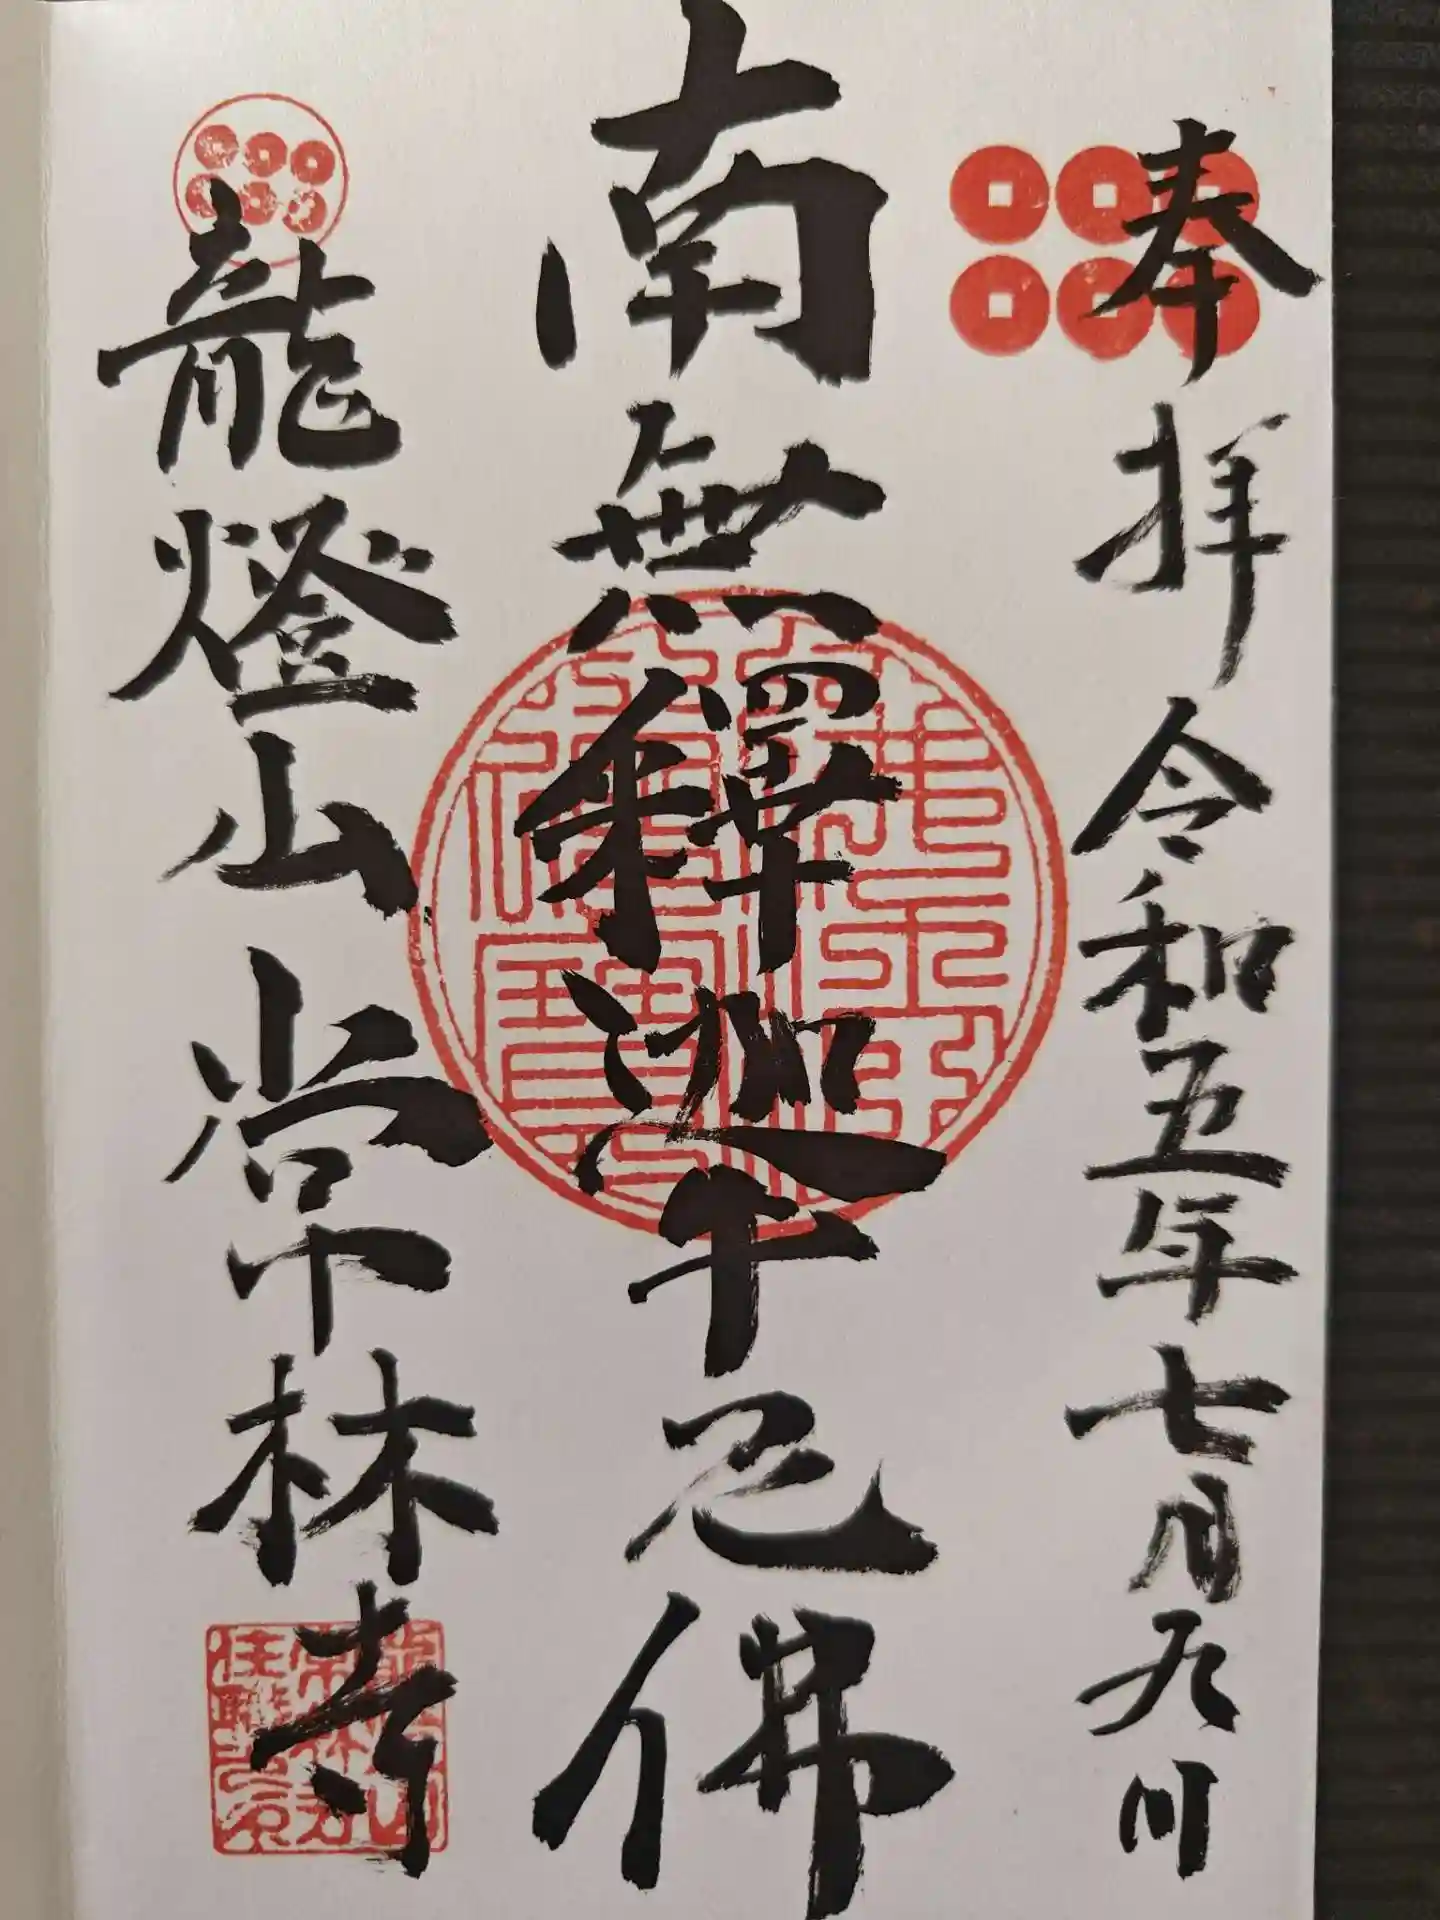 奉拝 令和五年七月九日
南無釋迦牟尼佛
龍燈山常林寺
佛法僧寶